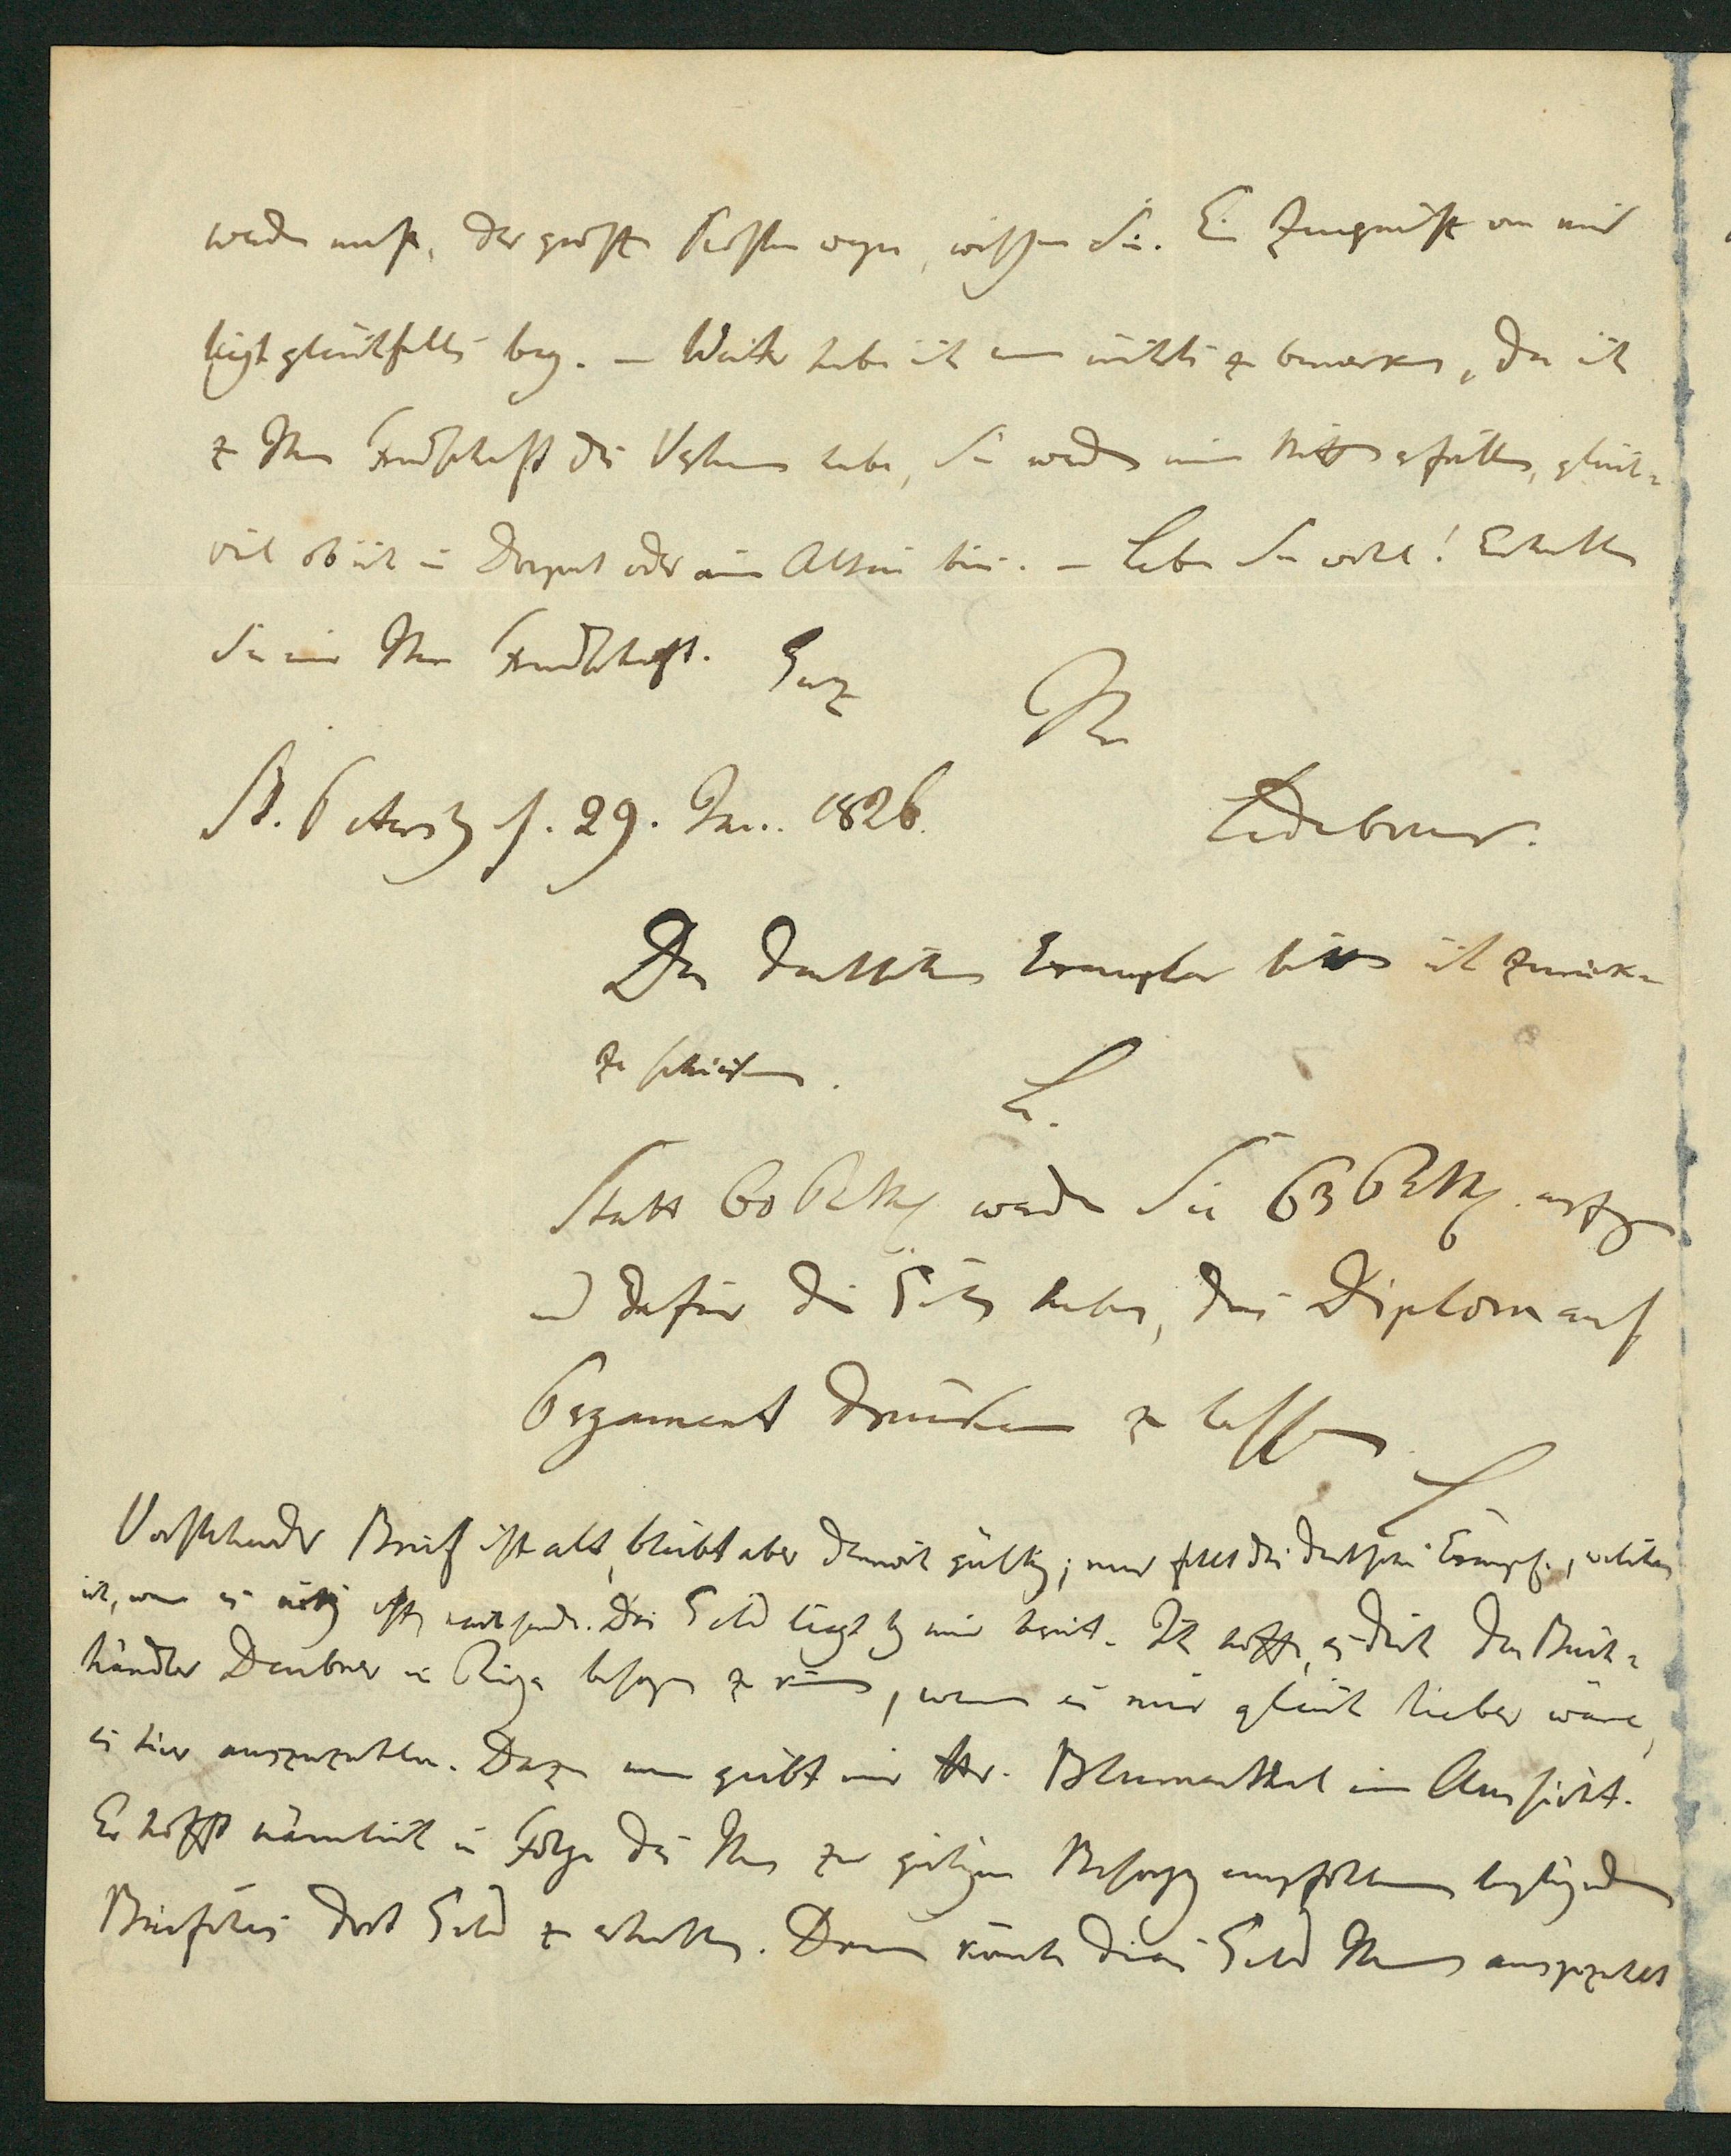 werden muß, der großen Kosten wegen, wissen Sie. Ein Zeugniß von mir
liegt gleichfalls bey. – Weiter habe ich nun nichts zu bemerken, da ich
zu Ihrer Freundschaft das Vertrauen habe, Sie werden meine Bitte erfüllen, gleich-
viel ob ich in Dorpat oder am Altai bin. – Leben Sie wohl! Erhalten
Sie mir Ihre Freundschaft. Ganz
Ihr
St. Petersb. d. 29. Jan. 1826. Ledebour.
Das deutsche Exemplar bitte ich zurück-
zuschicken.
L.
Statt 60 werden Sie 63
und dafür die Güte haben, das Diplom auf
Pergament drucken zu lassen.
L.
Vorstehender Brief ist alt, bleibt aber dennoch gültig; nur fehlt das deutsche Exempl., welches
ich, wenn es nöthig ist, nachsende. Das Geld liegt bey mir bereit. Ich hoffe, es durch den Buch-
händler Deubner in Riga besorgen zu können, wenn es mir gleich lieber wäre,
es hier auszuzahlen. Dazu nun giebt mir Hr. Blumenthal eine Aussicht.
Er hofft nämlich in Folge des Ihnen zur gütigen Besorgung empfohlenen beyliegenden
Briefches dort Geld zu erhalten. Dann könnte dieses Geld Ihnen ausgezahlt